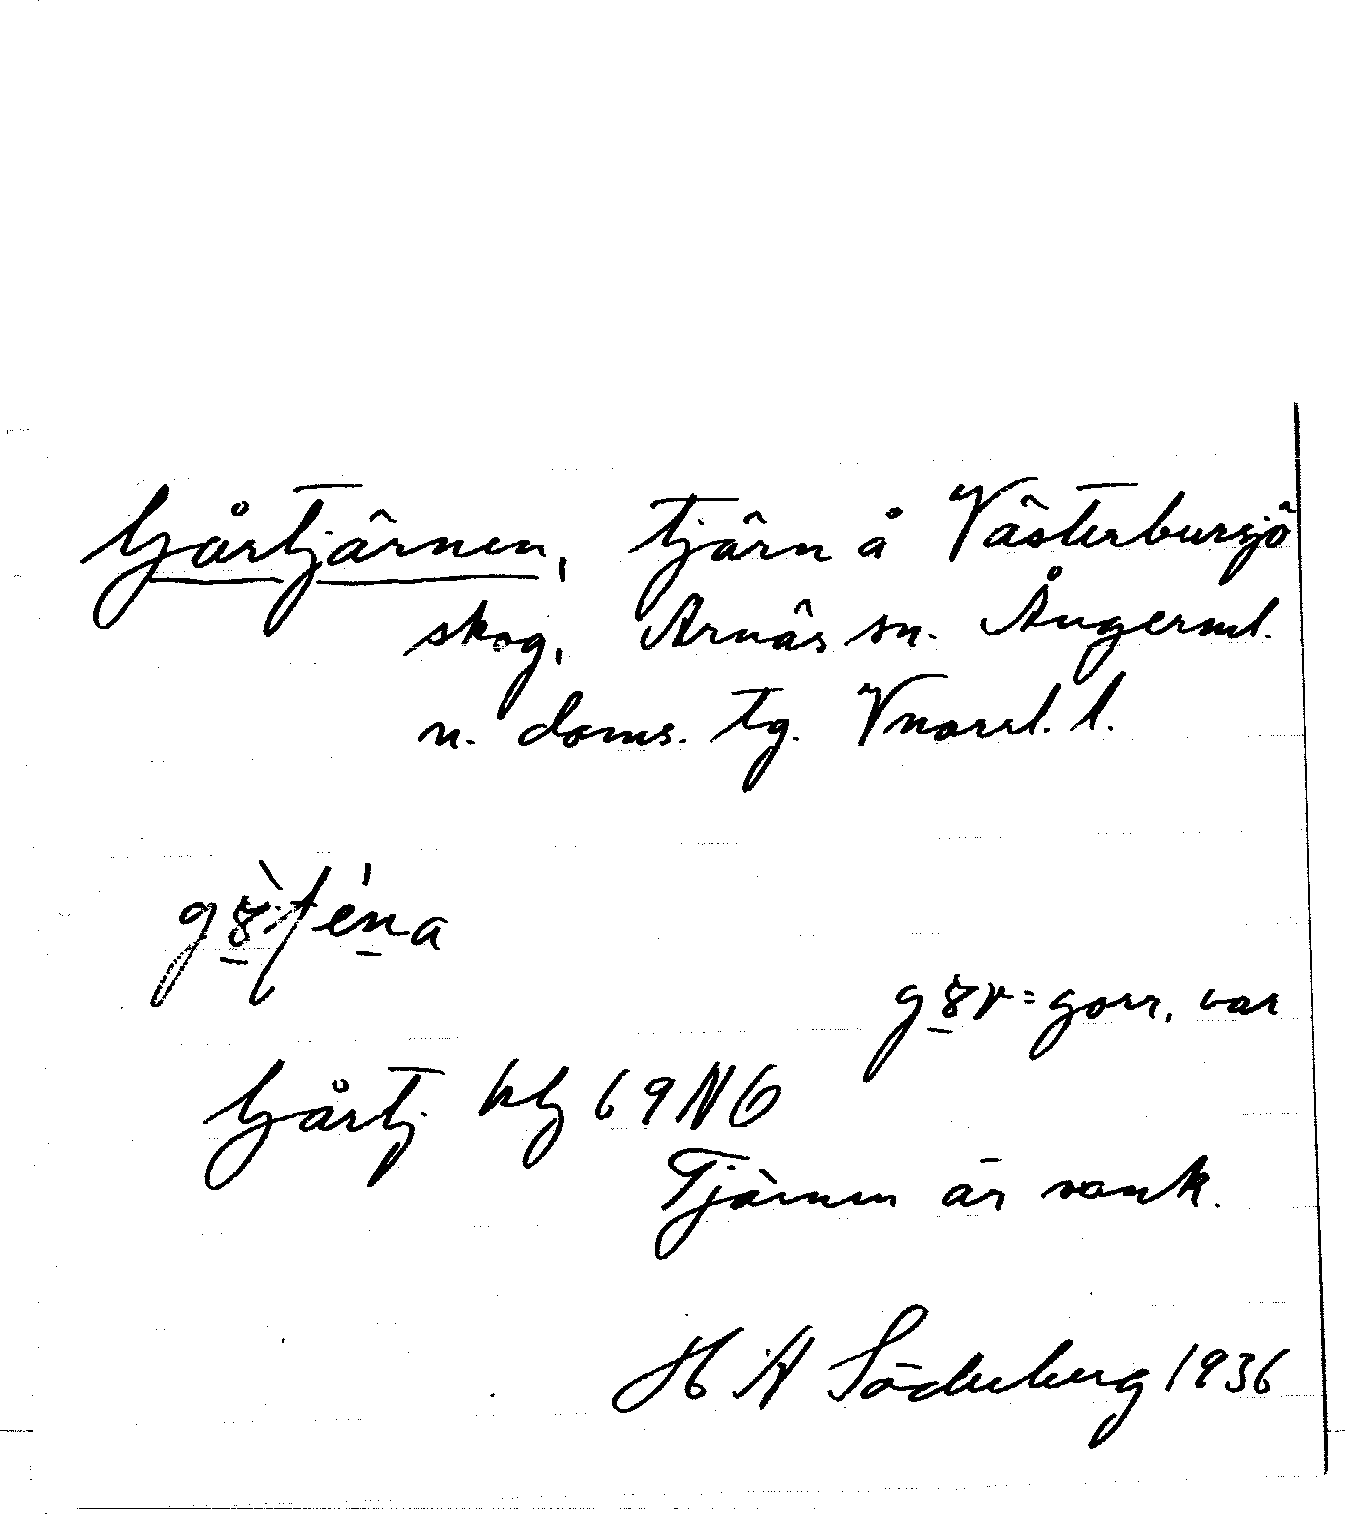 Gårtjärnen, tjärn å Västerbursjö
skog, Arnäs sn. Ångerml.
n. doms. tg. Vnorrl. l.
= gorr, var
Gårtj. kbl 69 NO
Tjärnen är rank.
H A Söderberg 1936